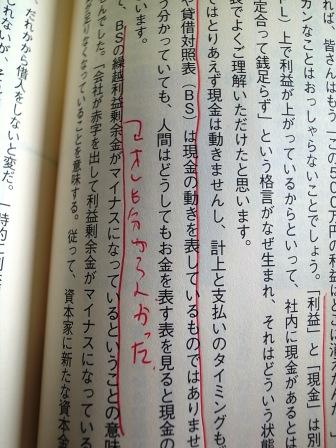 れば、皆さんはもう、この500万円の利益はどこに消えた
カンなことはおっしゃらないことでしょう。「利益」と「現金」は別
ト」上で利益が上がっているからといって、社内に現金があるとは
定合って銭足らず」という格言がなぜ生まれ、それはどういう状態
表でよくご理解いただけたと思います。
ではとりあえず現金は動きませんし、計上と支払いのタイミングも
や貸借対照表（BS）は現金の動きを表しているものではありませ
う分かっていても、人間はどうしてもお金を表す表を見ると現金の
います。
マオも分からんかった。
で、BSの繰越利益剰余金がマイナスになっているということの意味
んでした。「会社が赤字を出して利益剰余金がマイナスになっている
足りなくなっていることを意味する。従って、資本家に新たな資本金
、だれかから借入をしないと変だ。一時的に